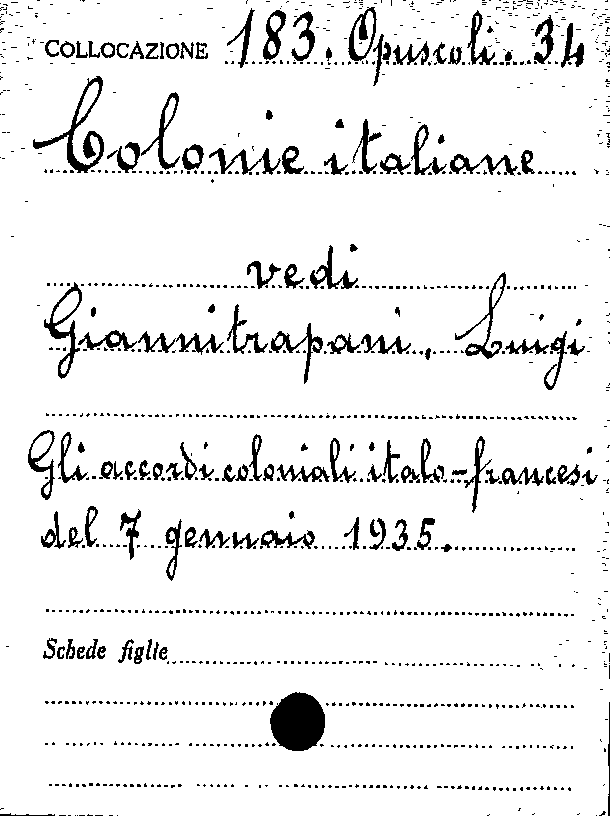 COLLOCAZIONE 183. Opuscoli. 34
Colonie italiane
vedi
Giannitrapani, Luigi
Gli accordi coloniali italo-francesi
del 7 gennaio 1935.
Schede figlie